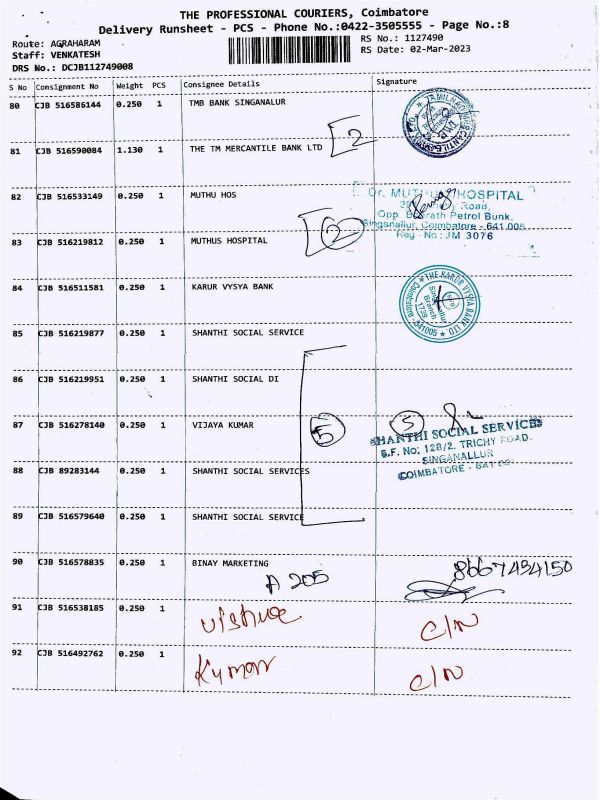 THE PROFESSIONAL COURIERS, Coimbatore
Delivery Runsheet - PCS - Phone No.:0422-3505555 - Page No.:8
Route: AGRAHARAM
Staff: VENKATESH
DRS No.: DCJB112749008
RS No.: 1127490
RS Date: 02-Mar-2023
S No Consignment No Weight PCS Consignee Details Signature
80 CJB 516586144 0.250 1 TMB BANK SINGANALUR
81 CJB 516590084 1.130 1 THE TM MERCANTILE BANK LTD 2
82 CJB 516533149 0.250 1 MUTHU HOS
Dr. MUTHU HOSPITAL
Road,
Opp. Bharath Petrol Bunk,
Singanallur, Coimbatore - 641 005
Reg - No : JM 3076
2
83 CJB 516219812 0.250 1 MUTHUS HOSPITAL
84 CJB 516511581 0.250 1 KARUR VYSYA BANK
THE KARUR VYSYA BANK LTD
Coimbatore - 641005
Singanallur
Branch
1739
85 CJB 516219877 0.250 1 SHANTHI SOCIAL SERVICE
86 CJB 516219951 0.250 1 SHANTHI SOCIAL DI
87 CJB 516278140 0.250 1 VIJAYA KUMAR 5 5
SHANTHI SOCIAL SERVICES
S.F. No: 128/2, TRICHY ROAD.
SINGANALLUR
COIMBATORE - 641 005
88 CJB 89283144 0.250 1 SHANTHI SOCIAL SERVICES
89 CJB 516579640 0.250 1 SHANTHI SOCIAL SERVICE
90 CJB 516578835 0.250 1 BINAY MARKETING 8667434150
A 205
91 CJB 516538185 0.250 1 C/N
92 CJB 516492762 0.250 1 Kumar C/N